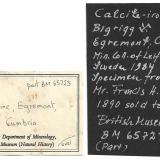 part BM 65723
ine, Egremont,
Cumbria
Department of Mineralogy,
Museum (Natural History)
Calcite-ir
Bigrigg
Egremont, C
Min. Coll. of Leif
Sweden, 1984
Specimen from
Mr. Francis H.
1890 sold to
British Museu
BM 6572
(Part)